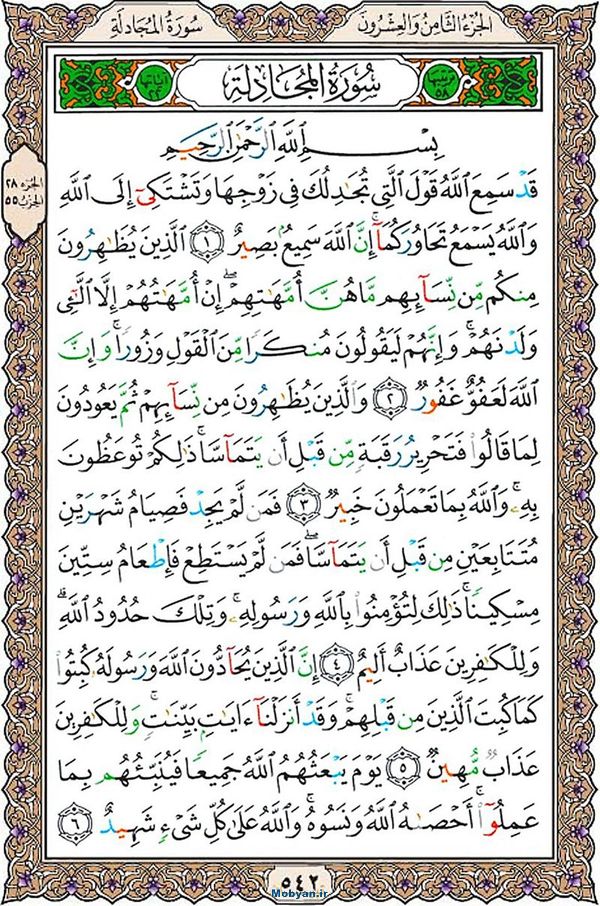 الجزء الثامن والعشرون
سورة المجادلة
ترتيبها ٥٨
سُورَةُ المُجَادلة
آياتها ٢٢
بِسْمِ اللَّهِ الرَّحْمَٰنِ الرَّحِيمِ
قَدْ سَمِعَ اللَّهُ قَوْلَ الَّتِي تُجَادِلُكَ فِي زَوْجِهَا وَتَشْتَكِي إِلَى اللَّهِ
الجزء ٢٨
الحزب ٥٥
وَاللَّهُ يَسْمَعُ تَحَاوُرَكُمَا ۚ إِنَّ اللَّهَ سَمِيعٌ بَصِيرٌ ﴿١﴾ الَّذِينَ يُظَاهِرُونَ
مِنكُم مِّن نِّسَائِهِم مَّا هُنَّ أُمَّهَاتِهِمْ ۖ إِنْ أُمَّهَاتُهُمْ إِلَّا اللَّائِي
وَلَدْنَهُمْ ۚ وَإِنَّهُمْ لَيَقُولُونَ مُنكَرًا مِّنَ الْقَوْلِ وَزُورًا ۚ وَإِنَّ
اللَّهَ لَعَفُوٌّ غَفُورٌ ﴿٢﴾ وَالَّذِينَ يُظَاهِرُونَ مِن نِّسَائِهِمْ ثُمَّ يَعُودُونَ
لِمَا قَالُوا فَتَحْرِيرُ رَقَبَةٍ مِّن قَبْلِ أَن يَتَمَاسَّا ۚ ذَٰلِكُمْ تُوعَظُونَ
بِهِ ۚ وَاللَّهُ بِمَا تَعْمَلُونَ خَبِيرٌ ﴿٣﴾ فَمَن لَّمْ يَجِدْ فَصِيَامُ شَهْرَيْنِ
مُتَتَابِعَيْنِ مِن قَبْلِ أَن يَتَمَاسَّا ۖ فَمَن لَّمْ يَسْتَطِعْ فَإِطْعَامُ سِتِّينَ
مِسْكِينًا ۚ ذَٰلِكَ لِتُؤْمِنُوا بِاللَّهِ وَرَسُولِهِ ۚ وَتِلْكَ حُدُودُ اللَّهِ ۗ
وَلِلْكَافِرِينَ عَذَابٌ أَلِيمٌ ﴿٤﴾ إِنَّ الَّذِينَ يُحَادُّونَ اللَّهَ وَرَسُولَهُ كُبِتُوا
كَمَا كُبِتَ الَّذِينَ مِن قَبْلِهِمْ ۚ وَقَدْ أَنزَلْنَا آيَاتٍ بَيِّنَاتٍ ۚ وَلِلْكَافِرِينَ
عَذَابٌ مُّهِينٌ ﴿٥﴾ يَوْمَ يَبْعَثُهُمُ اللَّهُ جَمِيعًا فَيُنَبِّئُهُم بِمَا
عَمِلُوا ۚ أَحْصَاهُ اللَّهُ وَنَسُوهُ ۚ وَاللَّهُ عَلَىٰ كُلِّ شَيْءٍ شَهِيدٌ ﴿٦﴾
٥٤٢
Mobyan.ir